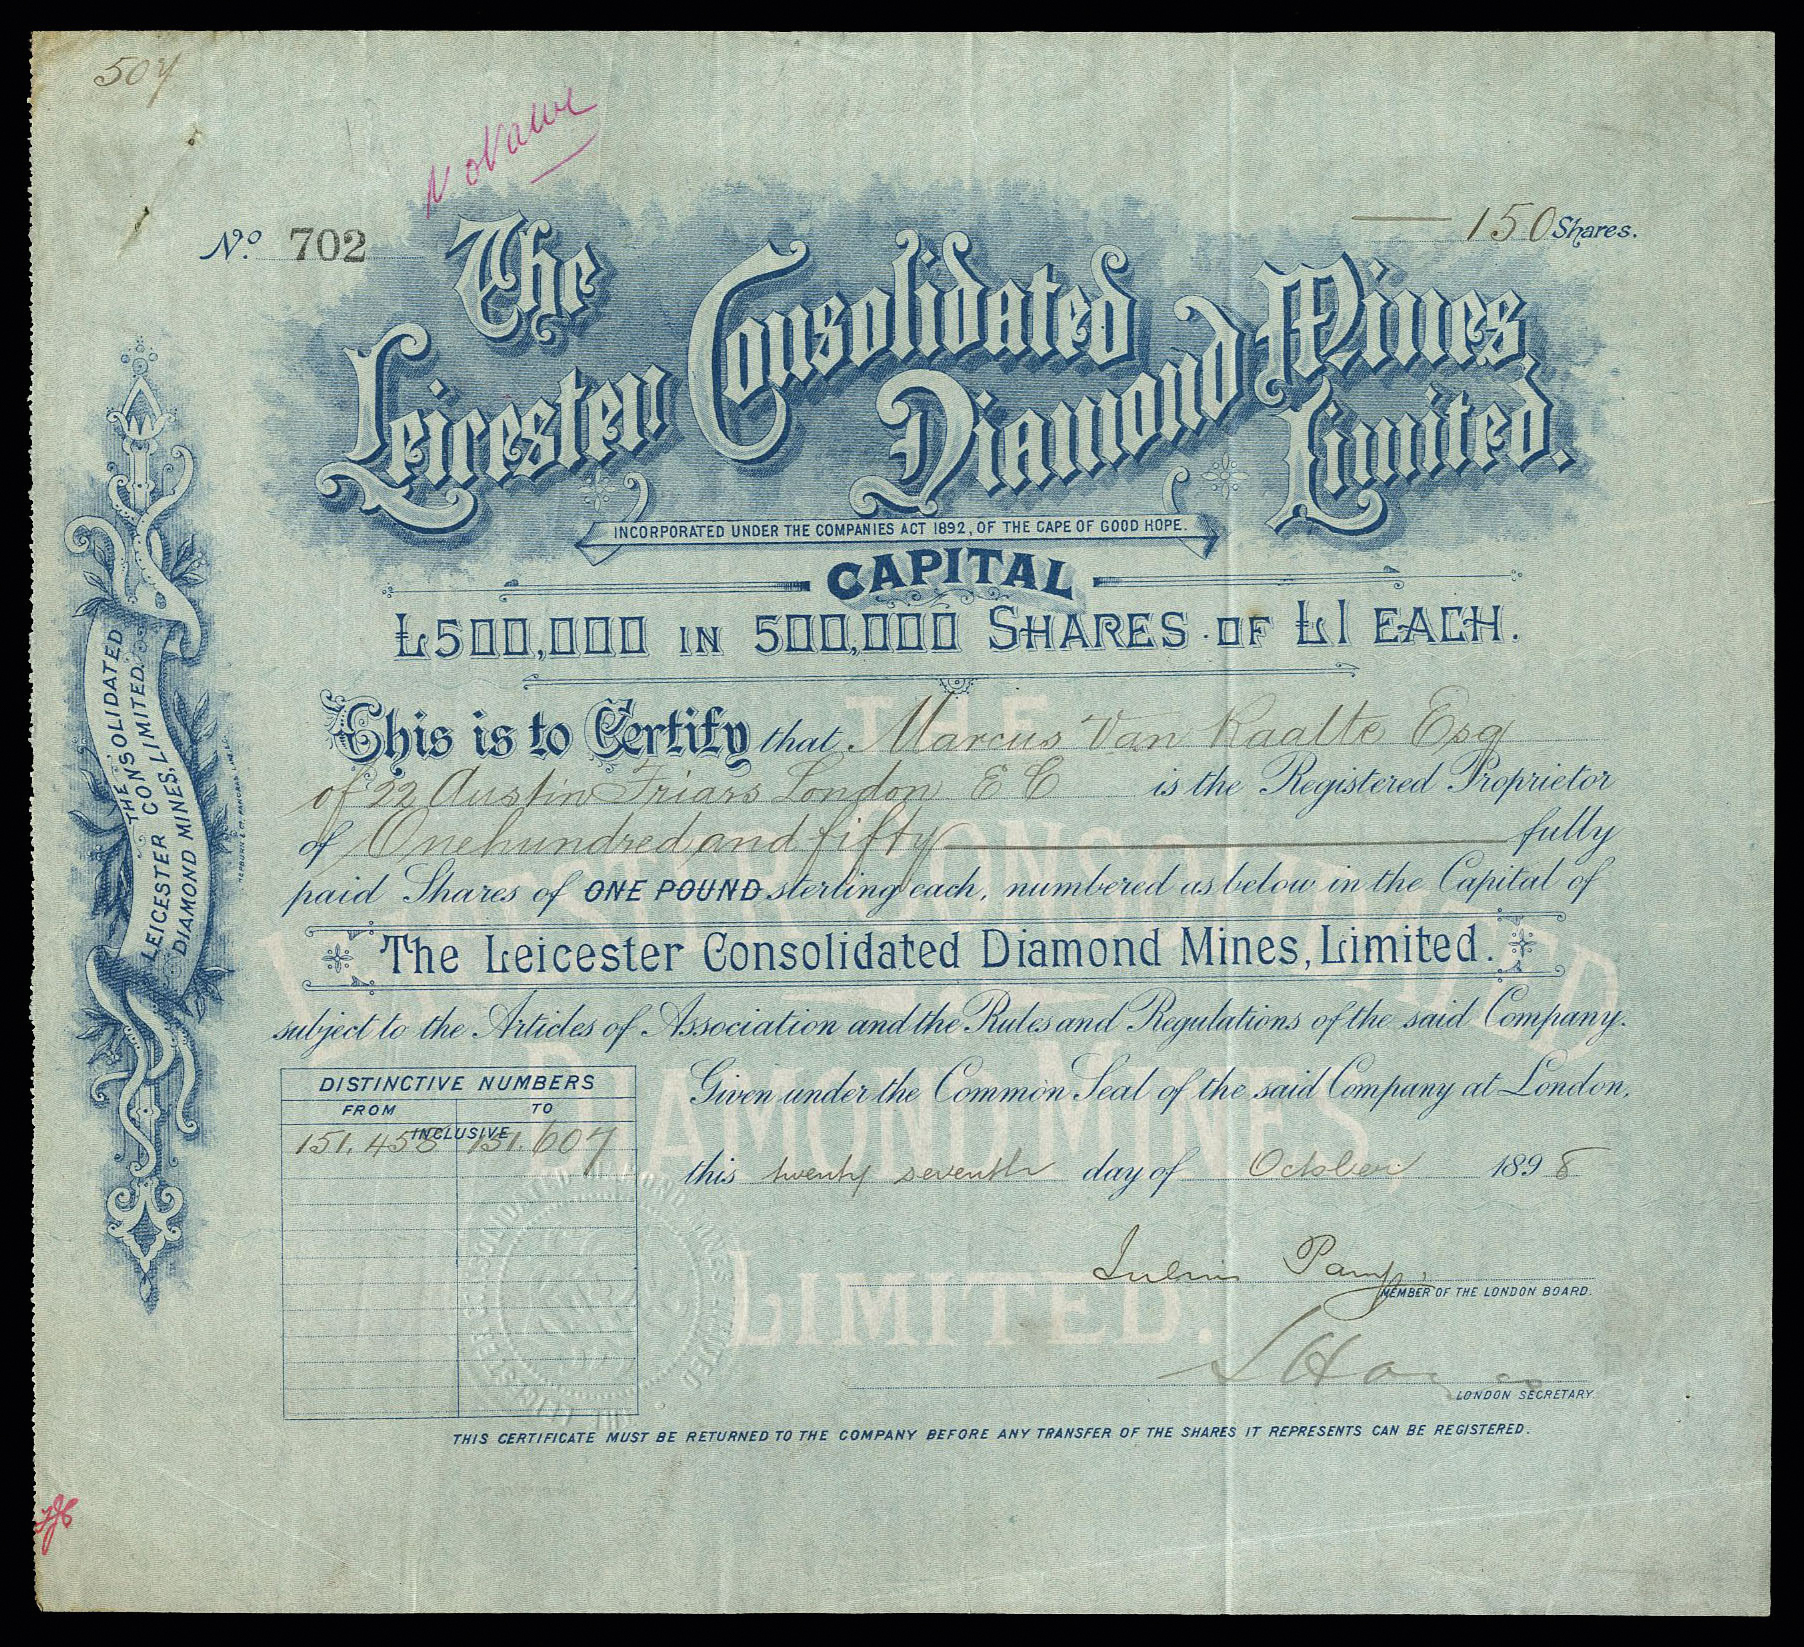 507
No Value
No. 702
150 Shares.
The
Leicester Consolidated Diamond Mines, Limited.
INCORPORATED UNDER THE COMPANIES ACT 1892, OF THE CAPE OF GOOD HOPE.
CAPITAL
£500,000 IN 500,000 SHARES OF £1 EACH.
This is to Certify that Marcus Van Raalte Esq
of 22 Austin Friars London E C is the Registered Proprietor
of One hundred and fifty fully
paid Shares of ONE POUND sterling each, numbered as below in the Capital of
The Leicester Consolidated Diamond Mines, Limited.
subject to the Articles of Association and the Rules and Regulations of the said Company.
Given under the Common Seal of the said Company at London,
this twenty seventh day of October 1898
DISTINCTIVE NUMBERS
FROM TO
INCLUSIVE
151.458 151.607
Julius
MEMBER OF THE LONDON BOARD.
LONDON SECRETARY.
THIS CERTIFICATE MUST BE RETURNED TO THE COMPANY BEFORE ANY TRANSFER OF THE SHARES IT REPRESENTS CAN BE REGISTERED.
THE
LEICESTER CONSOLIDATED
DIAMOND MINES, LIMITED.
THE
LEICESTER CONSOLIDATED
DIAMOND MINES,
LIMITED.